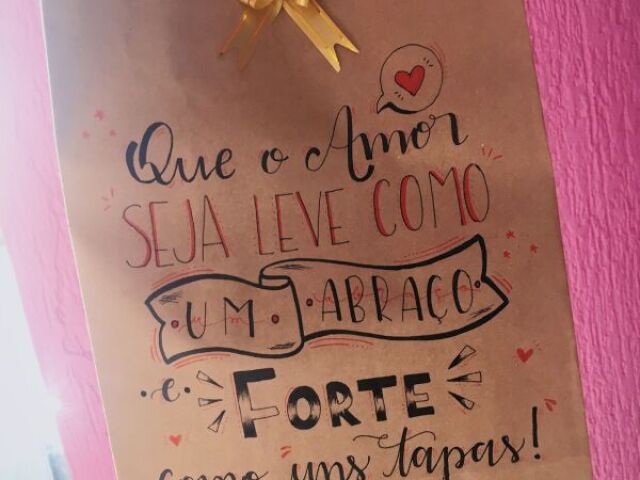 Que o Amor
SEJA LEVE COMO
UM ABRAÇO
e FORTE
como uns tapas!